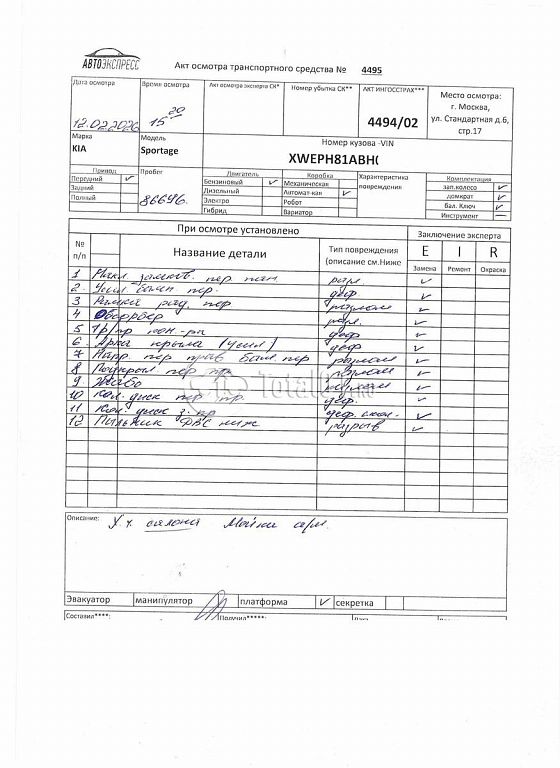 АВТОЭКСПРЕСС
Акт осмотра транспортного средства № 4495
Дата осмотра
12.02.2026
Время осмотра
15 20
Акт осмотра эксперта СК*
Номер убытка СК**
АКТ ИНГОССТРАХ***
4494/02
Место осмотра:
г. Москва,
ул. Стандартная д.6,
стр.17
Марка
KIA
Модель
Sportage
Номер кузова -VIN
XWEPH81ABH
Привод
Передний ✓
Задний
Полный
Пробег
86696
Двигатель
Бензиновый ✓
Дизельный
Электро
Гибрид
Коробка
Механическая
Автомат-кая ✓
Робот
Вариатор
Характеристика
повреждения
Комплектация
зап.колесо ✓
домкрат ✓
бал. Ключ ✓
Инструмент —
При осмотре установлено
Заключение эксперта
№
п/п
Название детали
Тип повреждения
(описание см.Ниже
E I R
Замена Ремонт Окраска
1 пер. ✓
2 Усил. бамп пер. деф ✓
3 Рамка рад. пер. разлом ✓
4 ✓
5 Тр/пр кон-ра деф ✓
6 Арка крыла (усил) деф ✓
7 пер прав бам. пер разлом ✓
8 Подкрыл пер пр. разлом ✓
9 Жабо разлом ✓
10 Кол. диск пер пр. деф. ✓
11 Кол. диск з. пр деф. ✓
12 Пыльник ДВС ниж разрыв ✓
Total
Описание: У.т. салона Мойка а/м
Эвакуатор манипулятор платформа ✓ секретка
Составил****: Получил*****: Дата